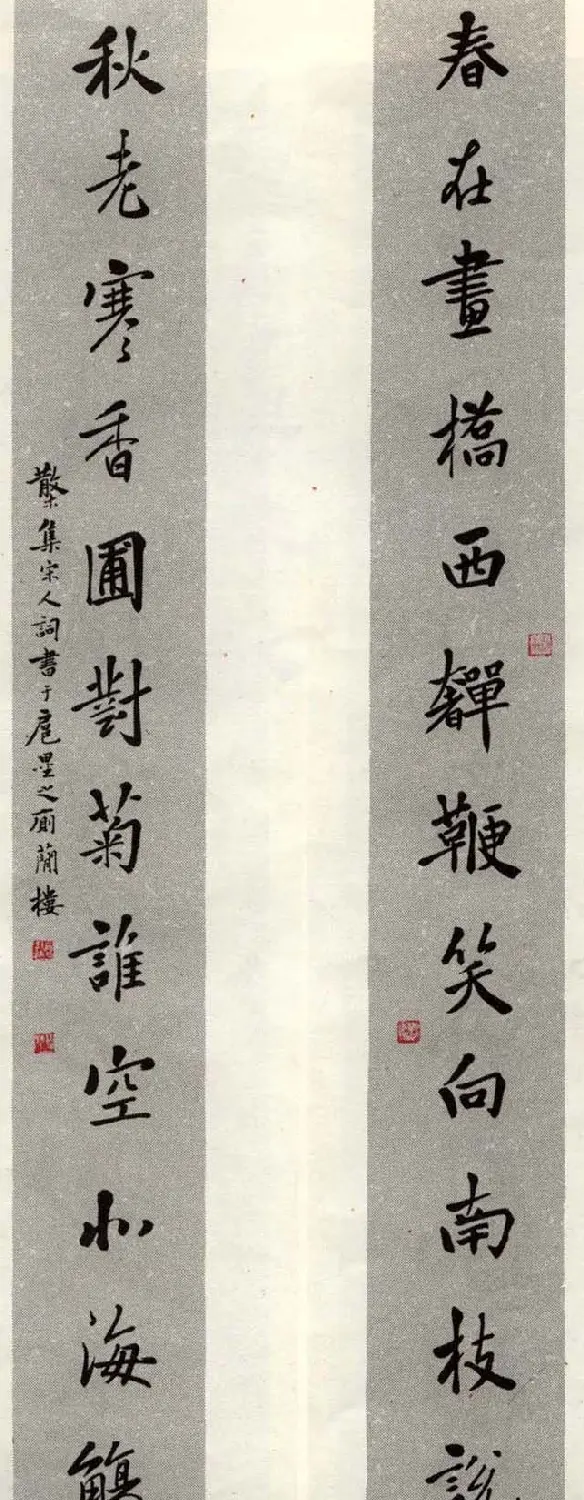 春在畫橋西嚲鞭笑向南枝說
秋老寒香圃對菊誰空北海觴
集宋人詞書于扈壘之廂蘭樓